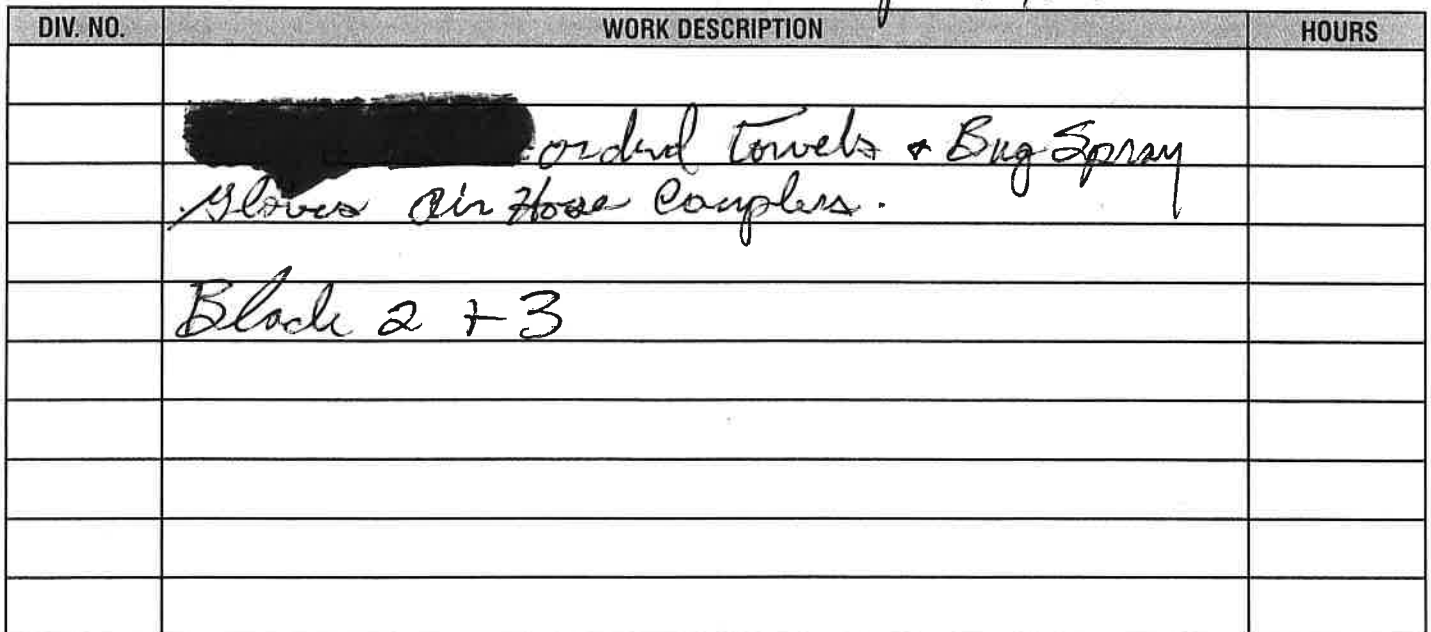 DIV. NO. WORK DESCRIPTION HOURS
orderd Towels & Bug Spray
Gloves Air Hose Couplers.
Block 2 + 3